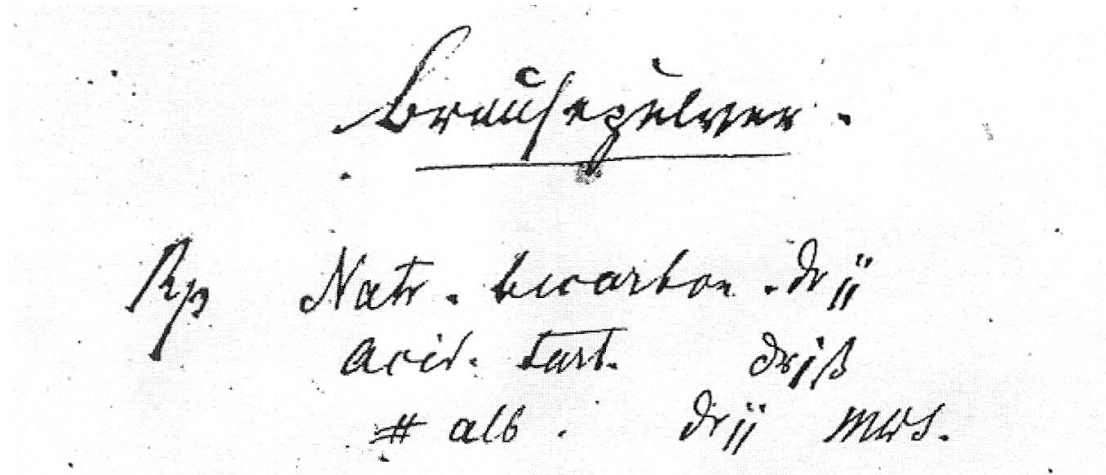 Brausepulver.
Rp Natr. bicarbon. dr jj
acid. tart. dr jß
# alb. dr jj MDS.